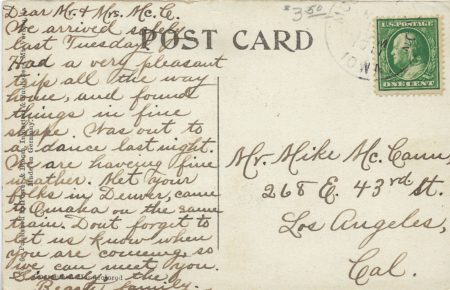 Dear Mr. & Mrs. Mc. C.
We arrived safely
last Tuesday.
Had a very pleasant
trip all the way
home, and found
things in fine
shape. Was out to
a dance last night.
We are haveing fine
weather. Met your
folks in Denver, came
to Omaha on the same
train. Dont forget to
let us know when
you are comeing, so
we can meet you.
Sincerely, the
family.
POST CARD
$3.50
IOWA
U.S. POSTAGE
ONE CENT
Mr. Mike Mc. Cann,
268 E. 43rd St.
Los Angeles,
Cal.